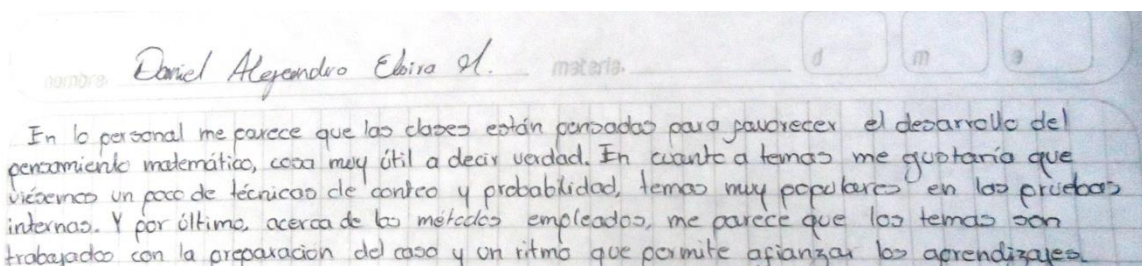 nombre. Daniel Alejandro Elvira H. materia. d m a
En lo personal me parece que las clases están pensadas para favorecer el desarrollo del
pensamiento matemático, cosa muy útil a decir verdad. En cuanto a temas me gustaría que
viésemos un poco de técnicas de conteo y probabilidad, temas muy populares en las pruebas
internas. Y por último, acerca de los métodos empleados, me parece que los temas son
trabajados con la preparacion del caso y un ritmo que permite afianzar los aprendizajes.